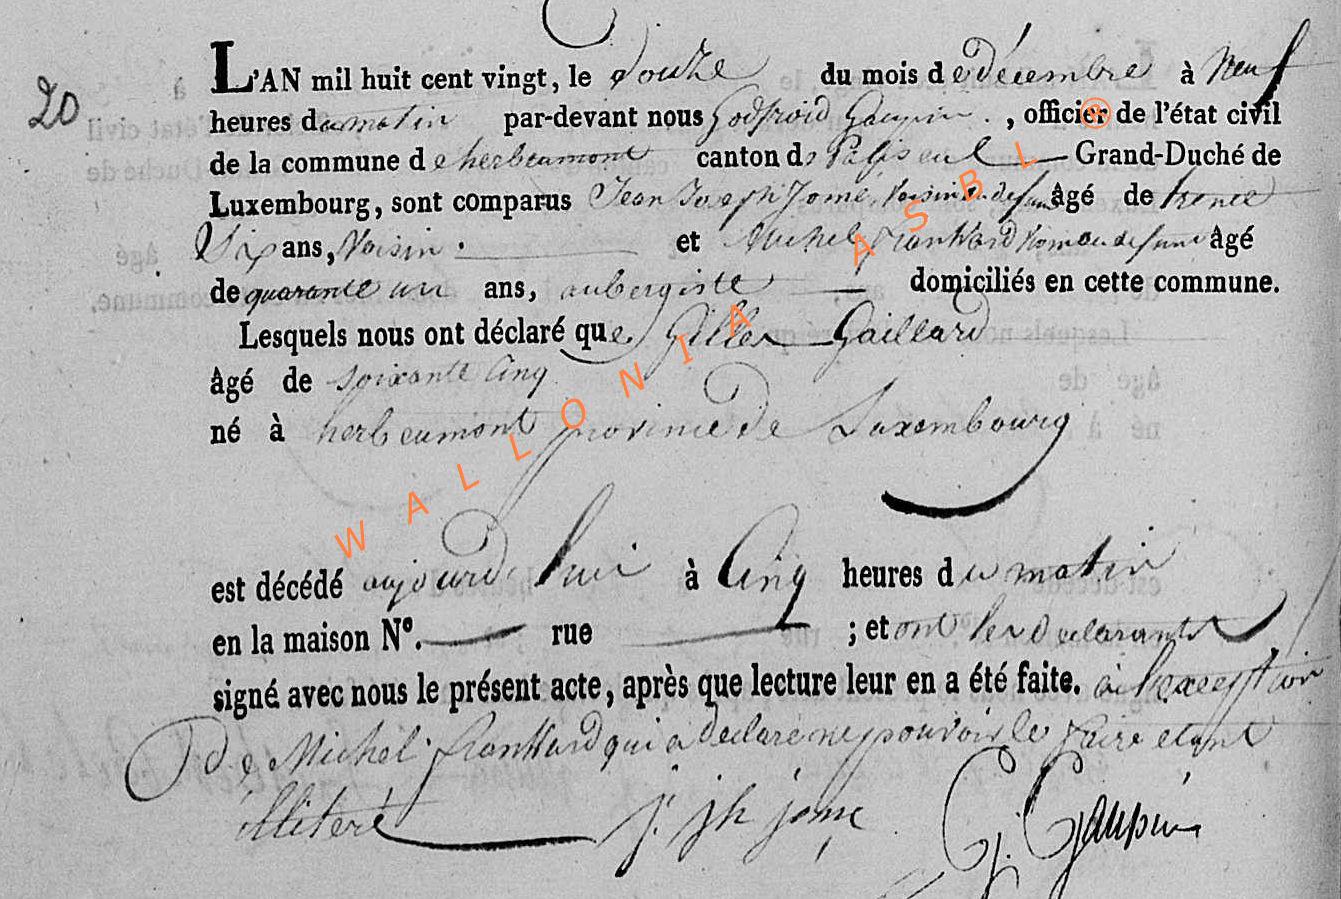 20
L'AN mil huit cent vingt, le douze du mois de décembre à neuf
heures du matin par-devant nous Godfroid Gaupin, officier de l'état civil
de la commune de herbeumont canton de Paliseul Grand-Duché de
Luxembourg, sont comparus Jean Joseph Jomé, Voisin du defunt âgé de trente
Six ans, Voisin. et Michel frankard du defunt âgé
de quarante un ans, aubergiste domiciliés en cette commune.
Lesquels nous ont déclaré que Gilles Gaillard
âgé de soixante Cinq
né à herbeumont province de Luxembourg
est décédé aujourd'hui à Cinq heures du matin
en la maison N°. rue ; et ont les declarants
signé avec nous le présent acte, après que lecture leur en a été faite. à l'exception
de Michel frankard qui a declaré ne pouvoir le faire etant
illiteré j. jh jomé G. Gaupin
WALLONIA ASBL ®